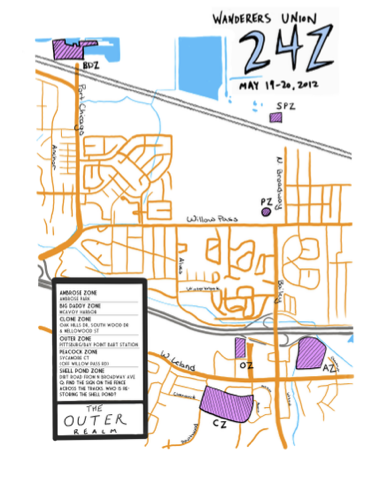 WANDERERS UNION
24Z
MAY 19-20, 2012
BDZ
SPZ
Port Chicago
N Broadway
PZ
Willow Pass
Bailey
W Leland
OZ
AZ
CZ
AMBROSE ZONE
AMBROSE PARK
BIG DADDY ZONE
MCAVOY HARBOR
CLONE ZONE
OAK HILLS DR, SOUTH WOOD DR
& MELLOWOOD ST
OUTER ZONE
PITTSBURG/BAY POINT BART STATION
PEACOCK ZONE
SYCAMORE CT
(OFF WILLOW PASS RD)
SHELL POND ZONE
DIRT ROAD FROM N BROADWAY AVE
Q: FIND THE SIGN ON THE FENCE
ACROSS THE TRACKS. WHO IS RE-
STORING THE SHELL POND?
THE
OUTER
REALM